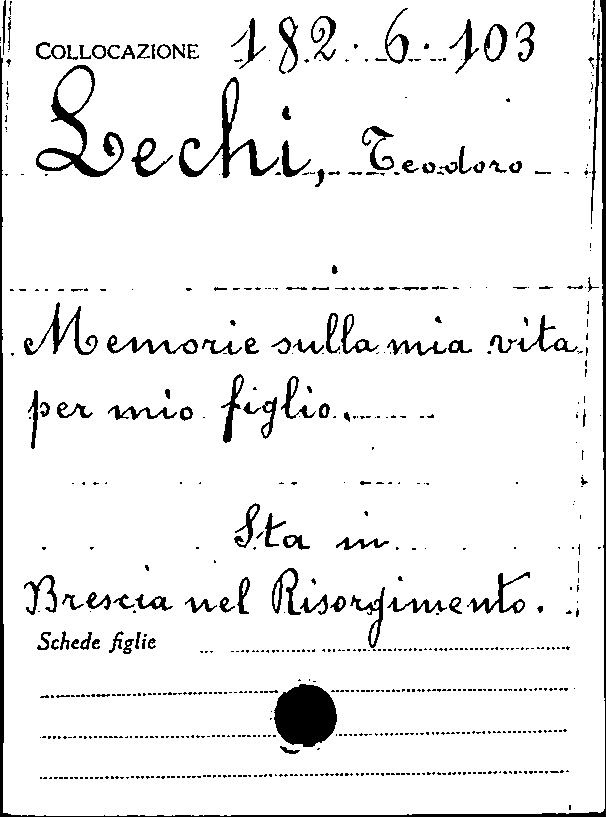 COLLOCAZIONE 182.6.103
Lechi, Teodoro
Memorie sulla mia vita
per mio figlio.
Sta in
Brescia nel Risorgimento.
Schede figlie